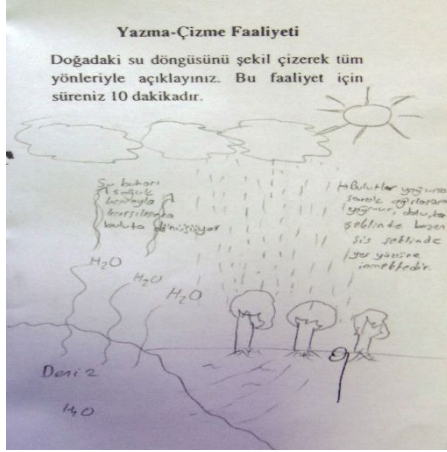 Yazma-Çizme Faaliyeti
Doğadaki su döngüsünü şekil çizerek tüm
yönleriyle açıklayınız. Bu faaliyet için
süreniz 10 dakikadır.
Su buharı
soğuk
havayla
karşılaşınca
buluta dönüşüyor
Bulutlar yoğunla
yağmur, dolu
şeklinde bazen
sis şeklinde
yer yüzüne
inmektedir.
H₂O
H₂O
H₂O
Deniz
H₂O